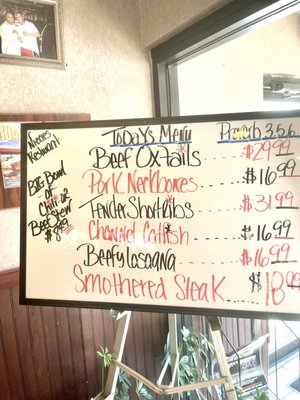 Today's Menu
Proverb 3.5.6
Beef Oxtails ..... $29.99
Pork Neckbones ..... $16.99
Tender Short Ribs ..... $31.99
Channel Catfish ..... $16.99
Beefy Lasagna ..... $16.99
Smothered Steak ..... $18.99
Restaurant
Big Bowl
of
Chili or
Beef Stew